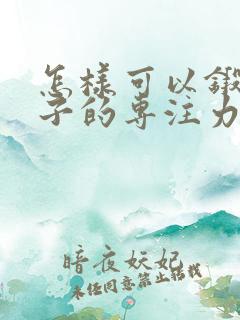 怎样可以锻
子的专注力
暗夜妖妃
未经同意禁止转载